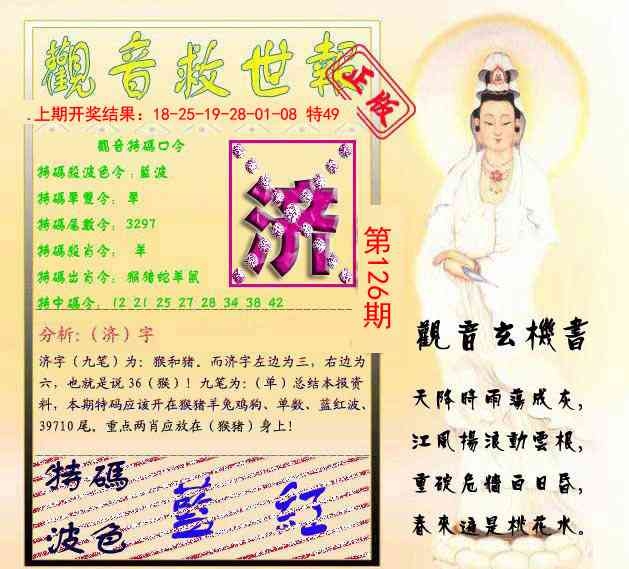 觀音救世報
正版
上期开奖结果：18-25-19-28-01-08 特49
觀音特碼口令
特碼殺波色令：藍波
特碼單雙令： 單
特碼尾數令： 3297
特碼殺肖令： 羊
特碼出肖令： 猴猪蛇羊鼠
特中碼令： 12 21 25 27 28 34 38 42
济
第126期
分析:（济）字
济字（九笔）为：猴和猪。而济字左边为三，右边为
六，也就是说 36（猴）！九笔为：（单）总结本报资
料，本期特码应该开在猴猪羊兔鸡狗、单数、蓝红波、
39710 尾。重点两肖应放在（猴猪）身上！
特碼
波色
藍 紅
觀音玄機書
天降時雨蕩成灰，
江風揚浪動雲根，
重碇危檣白日昏，
春來遍是桃花水。